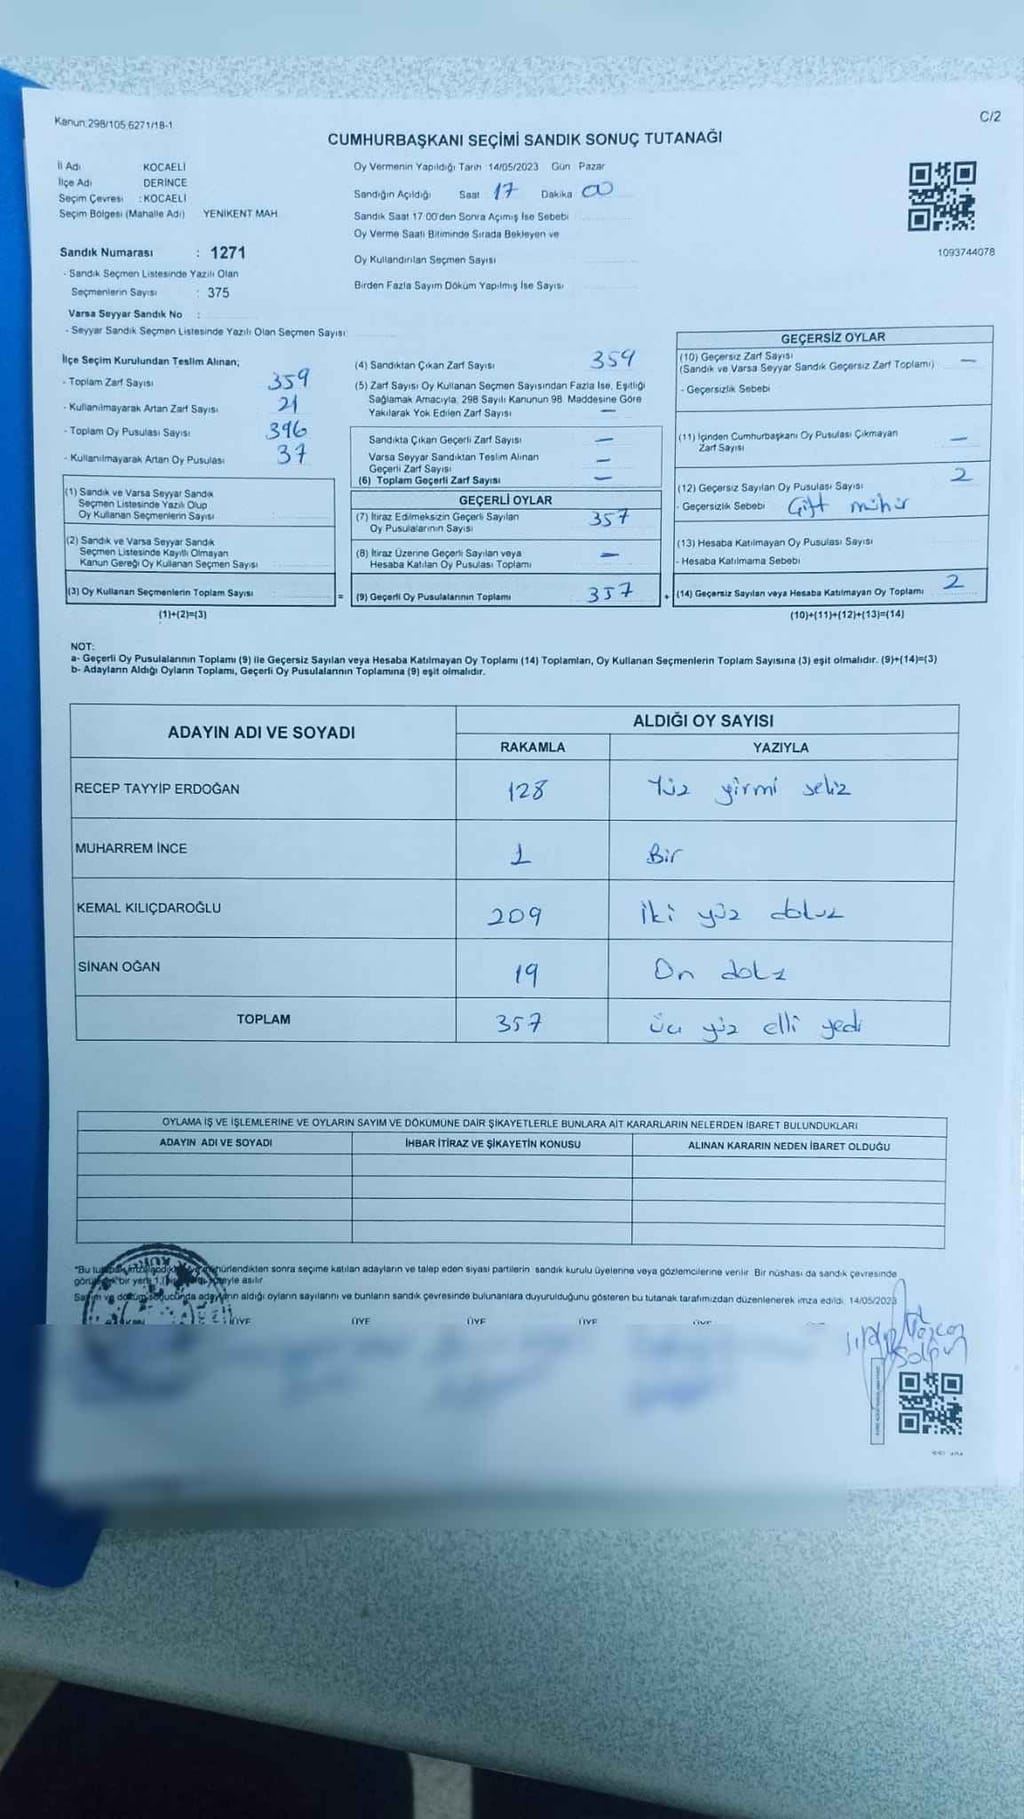 Kanun:298/105,6271/18-1
C/2
CUMHURBAŞKANI SEÇİMİ SANDIK SONUÇ TUTANAĞI
İl Adı KOCAELİ
İlçe Adı DERİNCE
Seçim Çevresi : KOCAELİ
Seçim Bölgesi (Mahalle Adı) YENİKENT MAH.
Oy Vermenin Yapıldığı Tarih 14/05/2023 Gün Pazar
Sandığın Açıldığı Saat 17 Dakika 00
Sandık Saat 17.00'den Sonra Açımış İse Sebebi
Oy Verme Saati Bitiminde Sırada Bekleyen ve
Oy Kullandırılan Seçmen Sayısı
Birden Fazla Sayım Döküm Yapılmış İse Sayısı
1093744078
Sandık Numarası : 1271
- Sandık Seçmen Listesinde Yazılı Olan
Seçmenlerin Sayısı : 375
Varsa Seyyar Sandık No :
- Seyyar Sandık Seçmen Listesinde Yazılı Olan Seçmen Sayısı:
İlçe Seçim Kurulundan Teslim Alınan;
- Toplam Zarf Sayısı 359
- Kullanılmayarak Artan Zarf Sayısı 21
- Toplam Oy Pusulası Sayısı 396
- Kullanılmayarak Artan Oy Pusulası 37
(1) Sandık ve Varsa Seyyar Sandık
Seçmen Listesinde Yazılı Olup
Oy Kullanan Seçmenlerin Sayısı
(2) Sandık ve Varsa Seyyar Sandık
Seçmen Listesinde Kayıtlı Olmayan
Kanun Gereği Oy Kullanan Seçmen Sayısı
(3) Oy Kullanan Seçmenlerin Toplam Sayısı
(1)+(2)=(3)
(4) Sandıktan Çıkan Zarf Sayısı 359
(5) Zarf Sayısı Oy Kullanan Seçmen Sayısından Fazla İse, Eşitliği
Sağlamak Amacıyla, 298 Sayılı Kanunun 98. Maddesine Göre
Yakılarak Yok Edilen Zarf Sayısı —
Sandıkta Çıkan Geçerli Zarf Sayısı —
Varsa Seyyar Sandıktan Teslim Alınan
Geçerli Zarf Sayısı —
(6) Toplam Geçerli Zarf Sayısı —
GEÇERLİ OYLAR
(7) İtiraz Edilmeksizin Geçerli Sayılan
Oy Pusulalarının Sayısı 357
(8) İtiraz Üzerine Geçerli Sayılan veya
Hesaba Katılan Oy Pusulası Toplamı —
= (9) Geçerli Oy Pusulalarının Toplamı 357
GEÇERSİZ OYLAR
(10) Geçersiz Zarf Sayısı —
(Sandık ve Varsa Seyyar Sandık Geçersiz Zarf Toplamı)
- Geçersizlik Sebebi
(11) İçinden Cumhurbaşkanı Oy Pusulası Çıkmayan
Zarf Sayısı —
(12) Geçersiz Sayılan Oy Pusulası Sayısı 2
- Geçersizlik Sebebi Çift mühür
(13) Hesaba Katılmayan Oy Pusulası Sayısı
- Hesaba Katılmama Sebebi
+ (14) Geçersiz Sayılan veya Hesaba Katılmayan Oy Toplamı 2
(10)+(11)+(12)+(13)=(14)
NOT:
a- Geçerli Oy Pusulalarının Toplamı (9) ile Geçersiz Sayılan veya Hesaba Katılmayan Oy Toplamı (14) Toplamları, Oy Kullanan Seçmenlerin Toplam Sayısına (3) eşit olmalıdır. (9)+(14)=(3)
b- Adayların Aldığı Oyların Toplamı, Geçerli Oy Pusulalarının Toplamına (9) eşit olmalıdır.
ADAYIN ADI VE SOYADI ALDIĞI OY SAYISI
RAKAMLA YAZIYLA
RECEP TAYYİP ERDOĞAN 128 Yüz yirmi sekiz
MUHARREM İNCE 1 Bir
KEMAL KILIÇDAROĞLU 209 İki yüz dokuz
SİNAN OĞAN 19 On dokz
TOPLAM 357 üç yüz elli yedi
OYLAMA İŞ VE İŞLEMLERİNE VE OYLARIN SAYIM VE DÖKÜMÜNE DAİR ŞİKAYETLERLE BUNLARA AİT KARARLARIN NELERDEN İBARET BULUNDUKLARI
ADAYIN ADI VE SOYADI İHBAR İTİRAZ VE ŞİKAYETİN KONUSU ALINAN KARARIN NEDEN İBARET OLDUĞU
"Bu sonra seçime katılan adayların ve talep eden siyasi partilerin sandık kurulu üyelerine veya gözlemcilerine verilir. Bir nüshası da sandık çevresinde
bir yere asılır
Sayım ve döküm sonucunda adayların aldığı oyların sayılarını ve bunların sandık çevresinde bulunanlara duyurulduğunu gösteren bu tutanak tarafımızdan düzenlenerek imza edildi. 14/05/2023
ÜYE ÜYE ÜYE ÜYE ÜYE